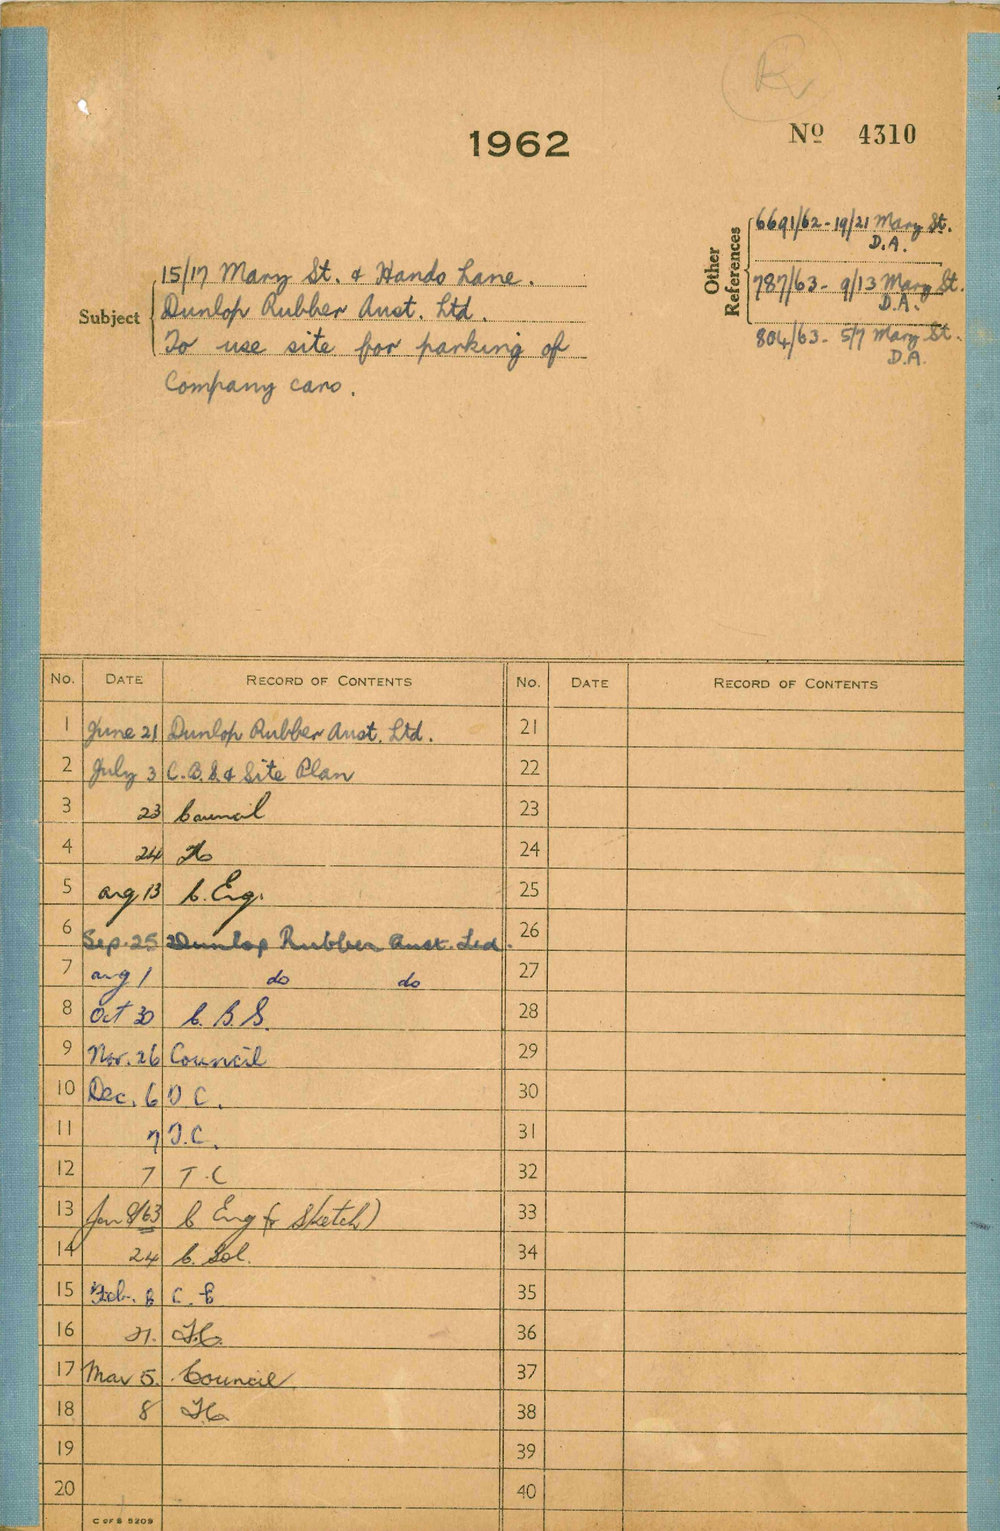 1962
Nº 4310
Other References
6691/62 - 19/21 Mary St.
D.A.
787/63 - 9/13 Mary St.
D.A.
804/63 - 5/7 Mary St.
D.A.
Subject
15/17 Mary St. & Hands Lane.
Dunlop Rubber Aust. Ltd.
To use site for parking of
Company cars.
No. DATE RECORD OF CONTENTS No. DATE RECORD OF CONTENTS
1 June 21 Dunlop Rubber Aust. Ltd. 21
2 July 3 C.B.S. & Site Plan 22
3 23 Council 23
4 24 24
5 Aug 13 C. Eng. 25
6 Sep. 25 Dunlop Rubber Aust. Ltd. 26
7 Aug 1 do do 27
8 Oct 30 C.B.S. 28
9 Nov. 26 Council 29
10 Dec. 6 30
11 7 T.C. 31
12 7 T.C 32
13 Jan 8/63 C Eng (& Sketch) 33
14 24 C. Sol. 34
15 Feb. 35
16 21. 36
17 Mar 5. Council 37
18 8 38
19 39
20 40
C OF S 5209